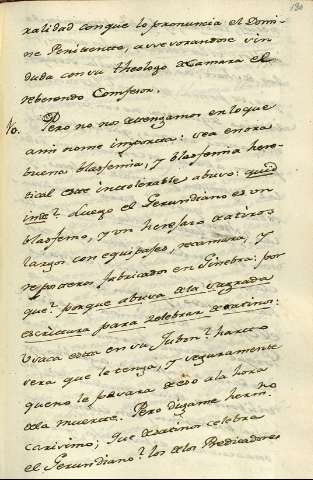 130
xalidad con que lo pronuncia el Domi-
ne Penitente, asesorandose sin
duda con su theologo de Camara el
reberendo Comfesor.
No. Pero no nos detengamos en lo que
a mi no me importa: sea en ora
buena blasfemia, y blasfemia here-
tical este intolerable abuso: quid
inde? Luego el Gerundiano es un
blasfemo, y un heresiarca de tiros
largos con equipages, recamara, y
reposteros fabricados en Ginebra: por
que? porque abusa de la sagrada
escritura para zelebrar desatinos:
Usasca esta en su Jubon? hartco
sera que le tenga, y seguramente
que no le pasara de eso a la hora
de la muerte. Pero digame herm.no
carisimo; Que desatinos celebra
el Gerundiano? los de los Predicadores